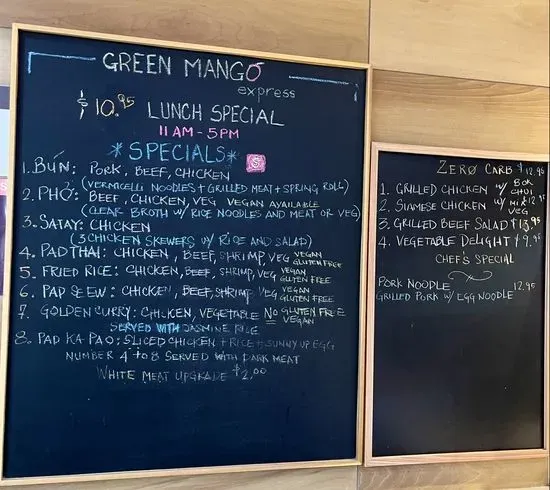 GREEN MANGO
express
$10.95 LUNCH SPECIAL
11AM-5PM
*SPECIALS*
1. BÚN: PORK, BEEF, CHICKEN
(VERMICELLI NOODLES + GRILLED MEAT + SPRING ROLL)
2. PHỞ: BEEF, CHICKEN, VEG VEGAN AVAILABLE
(CLEAR BROTH W/ RICE NOODLES AND MEAT OR VEG)
3. SATAY: CHICKEN
(3 CHICKEN SKEWERS W/ RICE AND SALAD)
4. PAD THAI: CHICKEN, BEEF, SHRIMP, VEG VEGAN GLUTEN FREE
5. FRIED RICE: CHICKEN, BEEF, SHRIMP, VEG VEGAN GLUTEN FREE
6. PAD SEEW: CHICKEN, BEEF, SHRIMP VEG VEGAN GLUTEN FREE
7. GOLDEN CURRY: CHICKEN, VEGETABLE NO GLUTEN FREE VEGAN
SERVED WITH JASMINE RICE
8. PAD KA PAO: SLICED CHICKEN + RICE + SUNNY UP EGG
NUMBER 4 TO 8 SERVED WITH DARK MEAT
WHITE MEAT UPGRADE $2.00
ZERO CARB $12.95
1. GRILLED CHICKEN W/ BOK CHOI
2. SIAMESE CHICKEN W/ MIX VEG $12.95
3. GRILLED BEEF SALAD $13.95
4. VEGETABLE DELIGHT $9.95
CHEF'S SPECIAL
PORK NOODLE 12.95
GRILLED PORK W/ EGG NOODLE